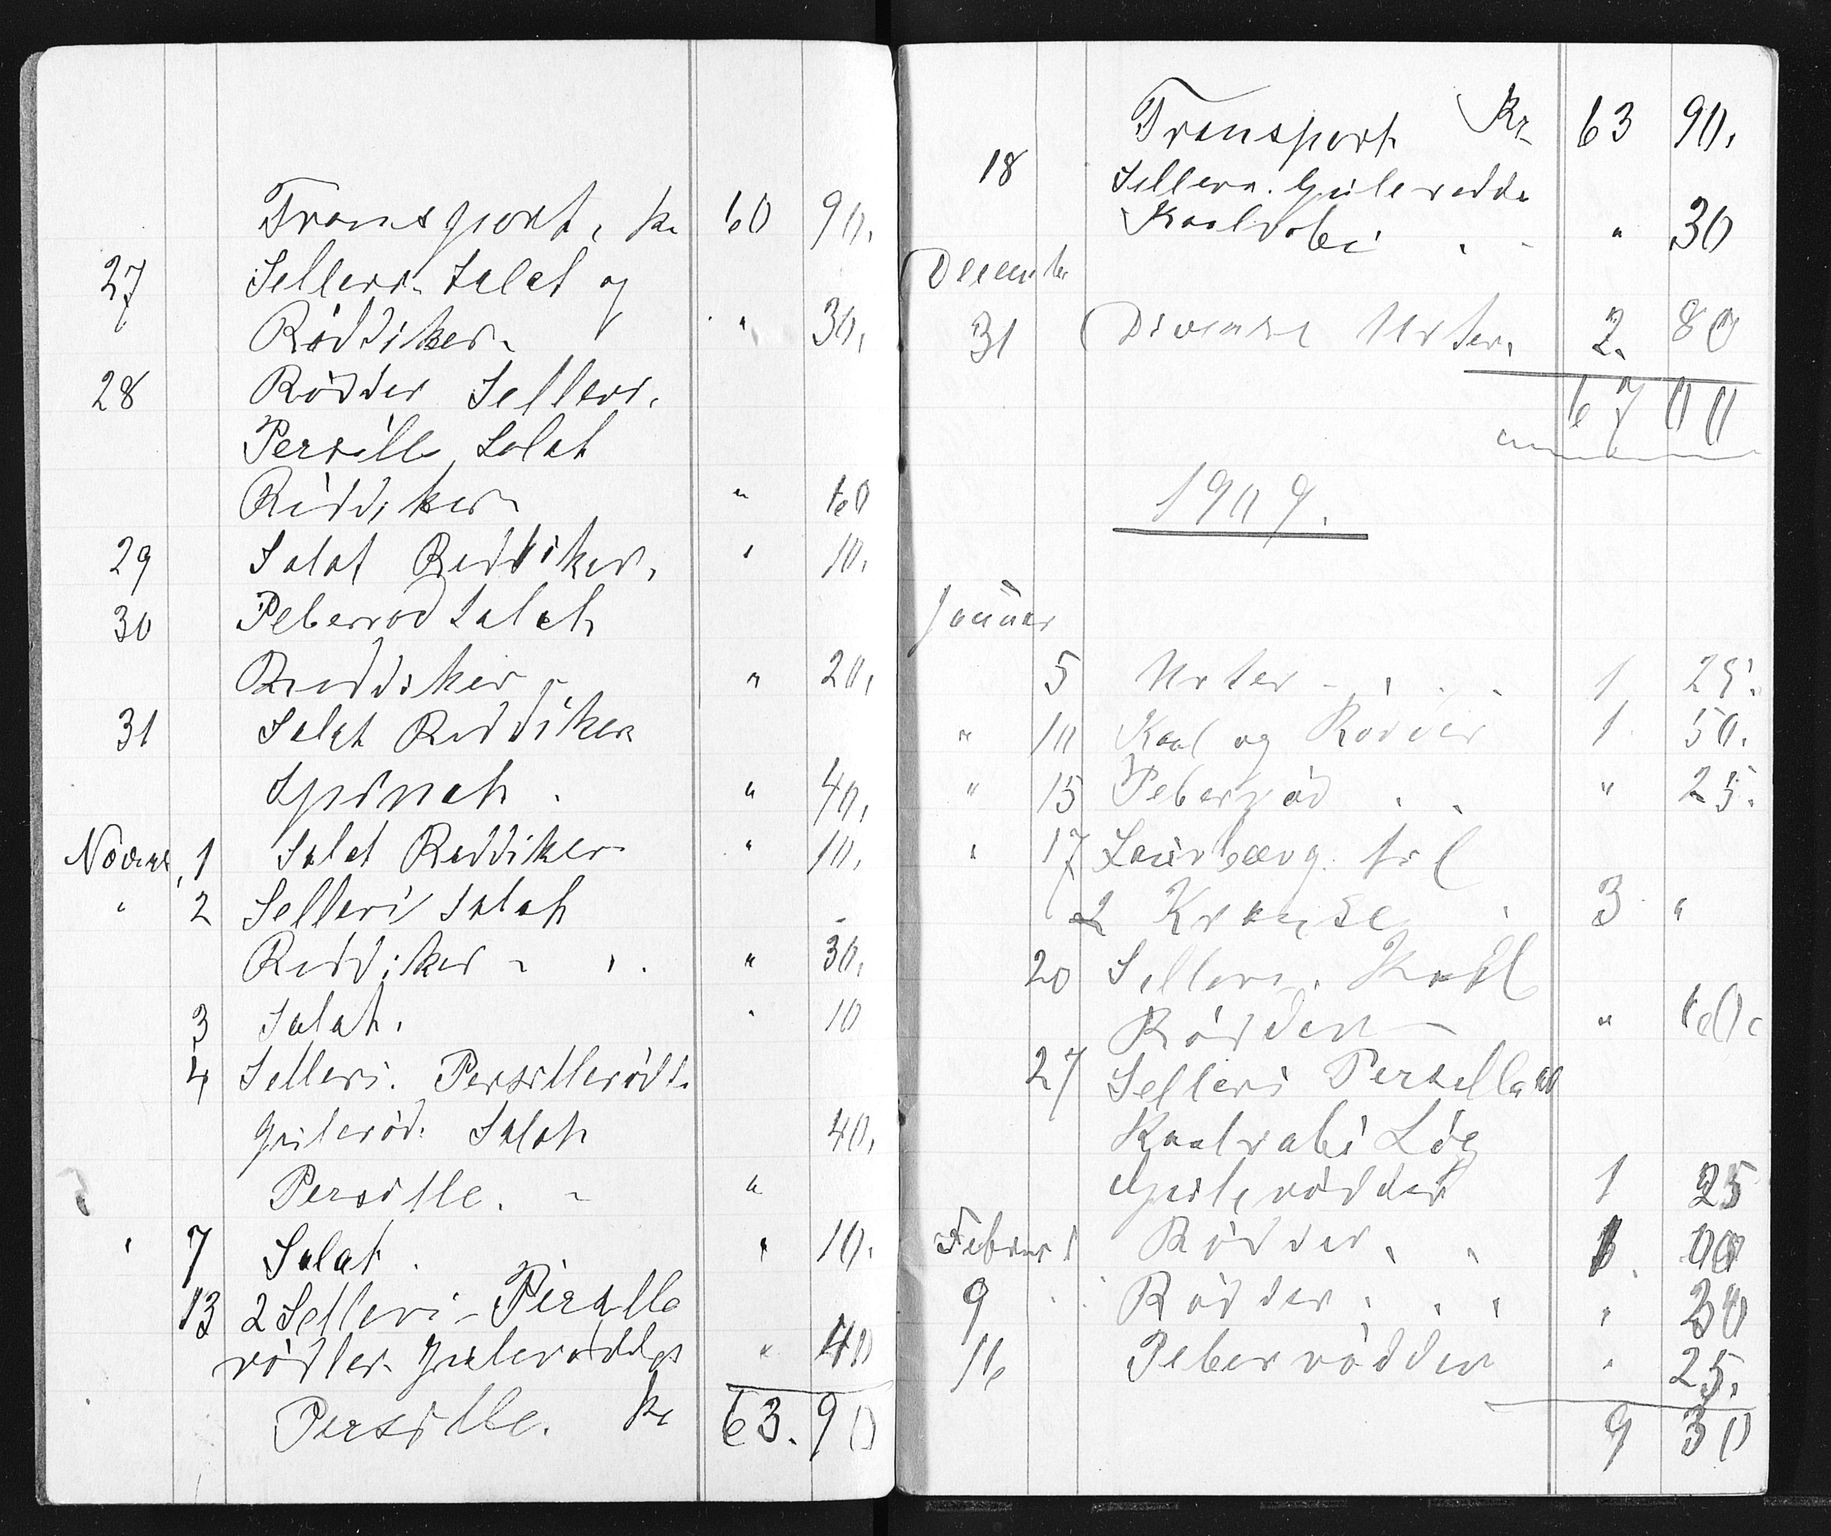 Transport, Kr 60 90.
27 Selleri Salat og
Røddiker " 30.
28 Rødder Selleri.
Persille Salat
Reddiker " 60
29 Salat Reddiker. " 10.
30 Peberrod Salat
Reddiker " 20.
31 Salat Reddiker
Spinat . " 40.
Novem. 1 Salat Reddiker " 10.
" 2 Selleri Salat
Reddiker - " 30.
3 Salat. " 10
4 Selleri. Persillerødd.
Gulerød. Salat 40.
Persille. - "
" 7 Salat . " 10.
13 2 Selleri - Persille
rødder. Gulerødder " 40
Persille. Kr 63.90
Transport Kr 63 90.
18 Selleri. Gulerødde
Kaalrabi . - " 30
December
31 Diverse Urter. 2. 80
67 00
1909.
Januar
5 Urter - . . . 1 25.
" 10 Kaal og Rødder 1. 50.
" 15 Peberrod . . " 25.
" 17 Laurbærg. til
2 Kranse 3 "
20 Selleri. Kaal
Rødder " 60.
27 Selleri Persille
Kaalrabi Løg
Gulerødder 1 25
Februar 1 Rødder. . 1. 00
9 Rødder. . . " 30
16 Peberrødder " 25.
9 30